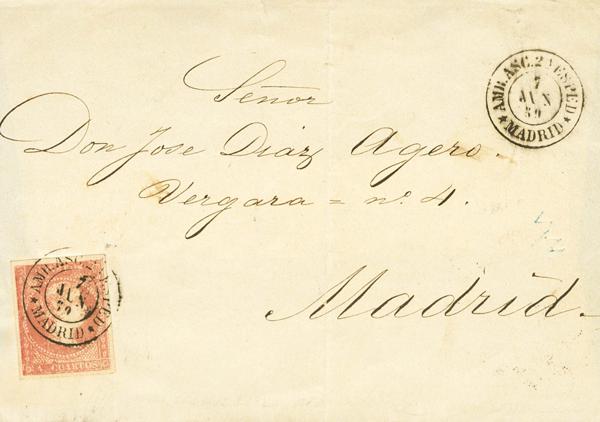 AMB.ASC.2ª ESPED
7
JUN
59
★ MADRID ★
Señor
Don Jose Diaz Agero.
Vergara = nº 4.
Madrid.
AMB.ASC.2ª ESPED
7
JUN
59
★ MADRID ★
4 CUARTOS